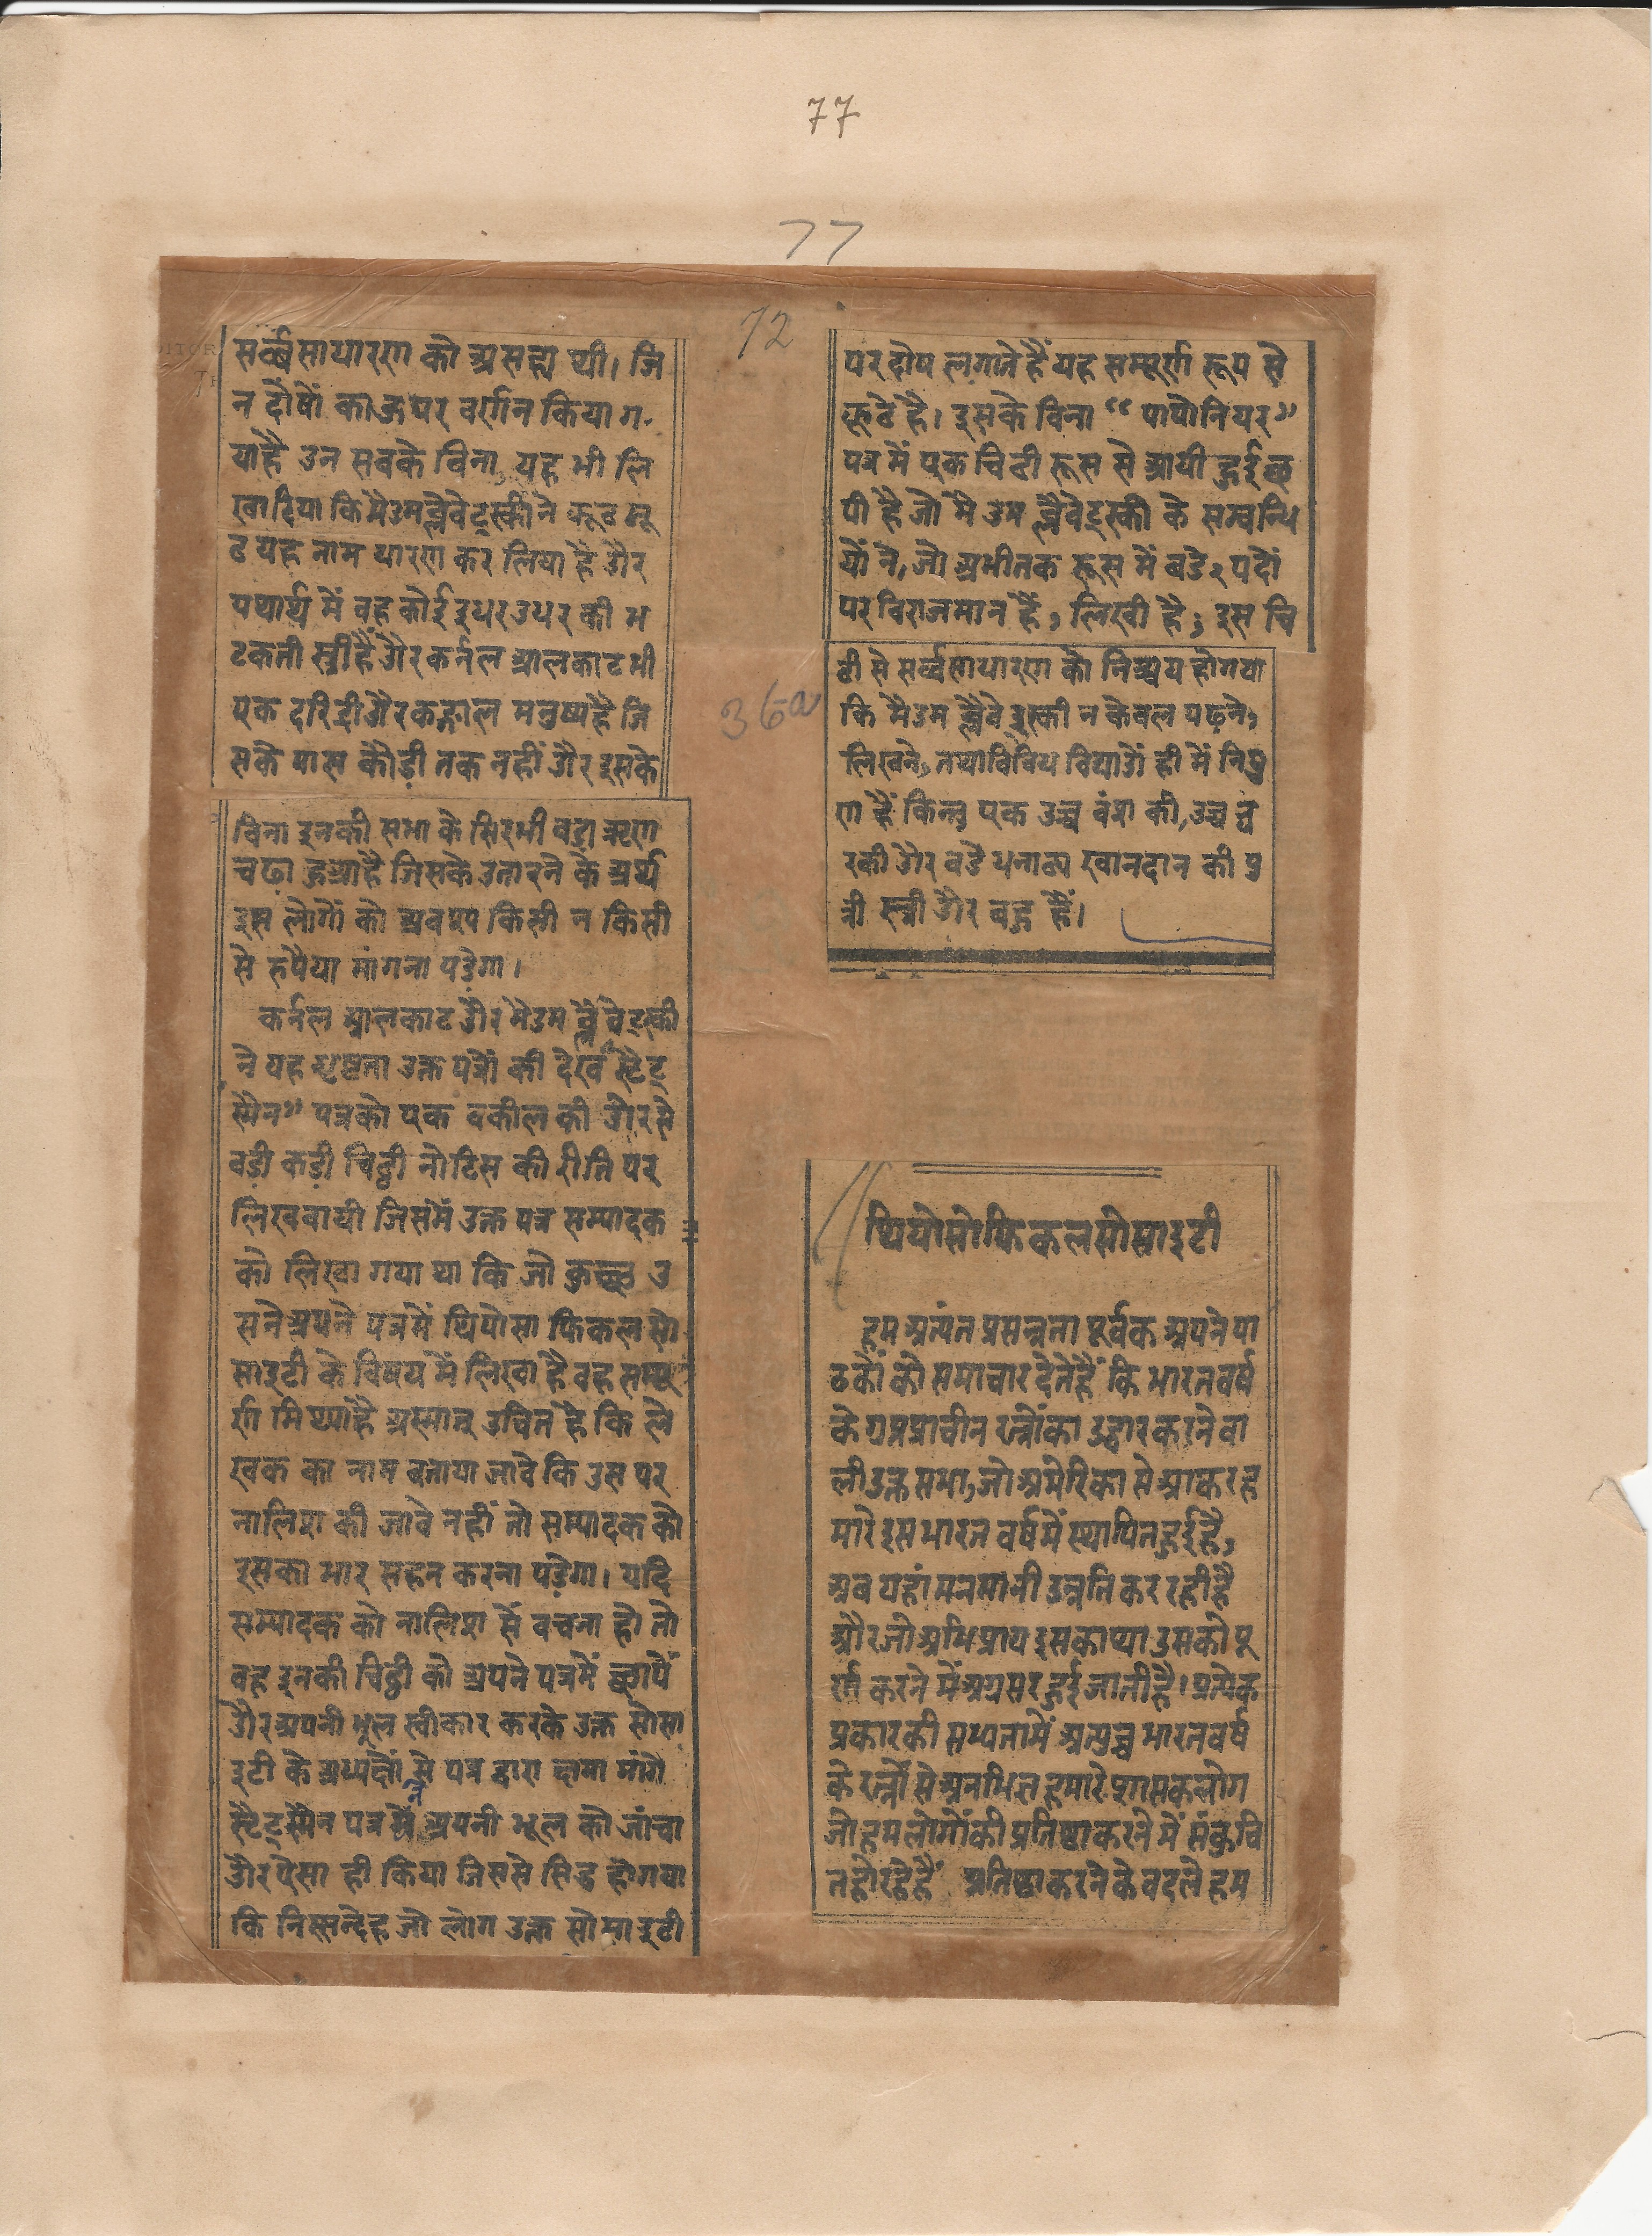 77
77
72
सर्व्वसाधारण को असह्य थी। जि
न दोषों का ऊपर वर्णन किया ग-
याहै उन सबके विना, यह भी लि
खादिया कि मैडमब्लैवेट्स्कीने झूठ मू
ठ यह नाम धारण कर लिया है और
यथार्थ में वह कोई इधर उधर की भ
टकती स्त्री हैं और कर्नल आलकाट भी
एक दरिद्री और कङ्गाल मनुष्य है जि
सके पास कौड़ी तक नहीं और इसके
विना इनकी सभा के सिर भी बड़ा ऋण
चढा हुआ है जिसके उतारने के अर्थ
इस लोगों को अवश्य किसी न किसी
से रुपैया मांगना पड़ेगा।
कर्नल आलकाट और मेडम ब्लैवेट्स्की
ने यह धृष्टता उक्त पत्रों की देख "स्टेट्
स्मैन" पत्रको एक वकील की ओर से
बड़ी कड़ी चिट्ठी नोटिस की रीति पर
लिखवायी जिसमें उक्त पत्र सम्पादक
को लिखा गया था कि जो कुच्छ उ
सने अपने पत्रमें थियोसा फिकल सो
साइटी के विषय में लिखा है वह सम्पू
र्ण मिथ्या है अस्मात् उचित है कि ले
खक का नाम बताया जावे कि उस पर
नालिश की जावे नहीं तो सम्पादक को
इसका भार सहन करना पड़ेगा। यदि
सम्पादक को नालिश से बचना हो तो
वह इनकी चिठ्ठी को अपने पत्रमें छापें
और अपनी भूल स्वीकार करके उक्त सोसा
इटी के अध्यक्षों से पत्र द्वारा क्षमा मांगे
स्टेट्स्मैन पत्र ने अपनी भूल को जांचा
और ऐसा ही किया जिससे सिद्ध होगया
कि निस्सन्देह जो लोग उक्त सोसाइटी
36a
पर दोष लगाते हैं यह सम्पूर्ण रूप से
झूठे है। इसके विना "पापोनियर"
पत्र में एक चिठी रूस से आयी हुई छ
पी है जो मैडम ब्लैवेट्स्की के सम्बन्धि
यों ने, जो अभीतक रूस में बडे२ पदों
पर विराजमान हैं, लिखी है; इस चि
ठी से सर्व्वसाधारण को निश्चय होगया
कि मैडम ब्लैवेट्स्की न केवल पढ़ने,
लिखने, तथा विविध विद्याओं ही में निपु
ण हैं किन्तु एक उच्च वंश की, उच्च घ
र की और बडे धनाढ्य खानदान की पु
त्री स्त्री और बहू हैं।
थियोसोफिकलसोसाइटी
हम अत्यंत प्रसन्नता पूर्वक अपने पा
ठकों को समाचार देते हैं कि भारतवर्ष
के गुप्त प्राचीन रत्नोंका उद्धार करने वा
ली उक्त सभा, जो अमेरिका से आकर ह
मारे इस भारत वर्षमें स्थापित हुई है,
अब यहां मनमानी उन्नति कर रही है
और जो अभिप्राय इसका था उसको पू
र्ण करने में अग्रसर हुई जाती है। प्रत्येक
प्रकारकी सभ्यतामें अत्युच्च भारतवर्ष
के रत्नों से अनभिज्ञ हमारे शासकलोग
जो हमलोगोंकी प्रतिष्ठा करने में संकुचि
त होरहे हैं प्रतिष्ठा करने के बदले हम